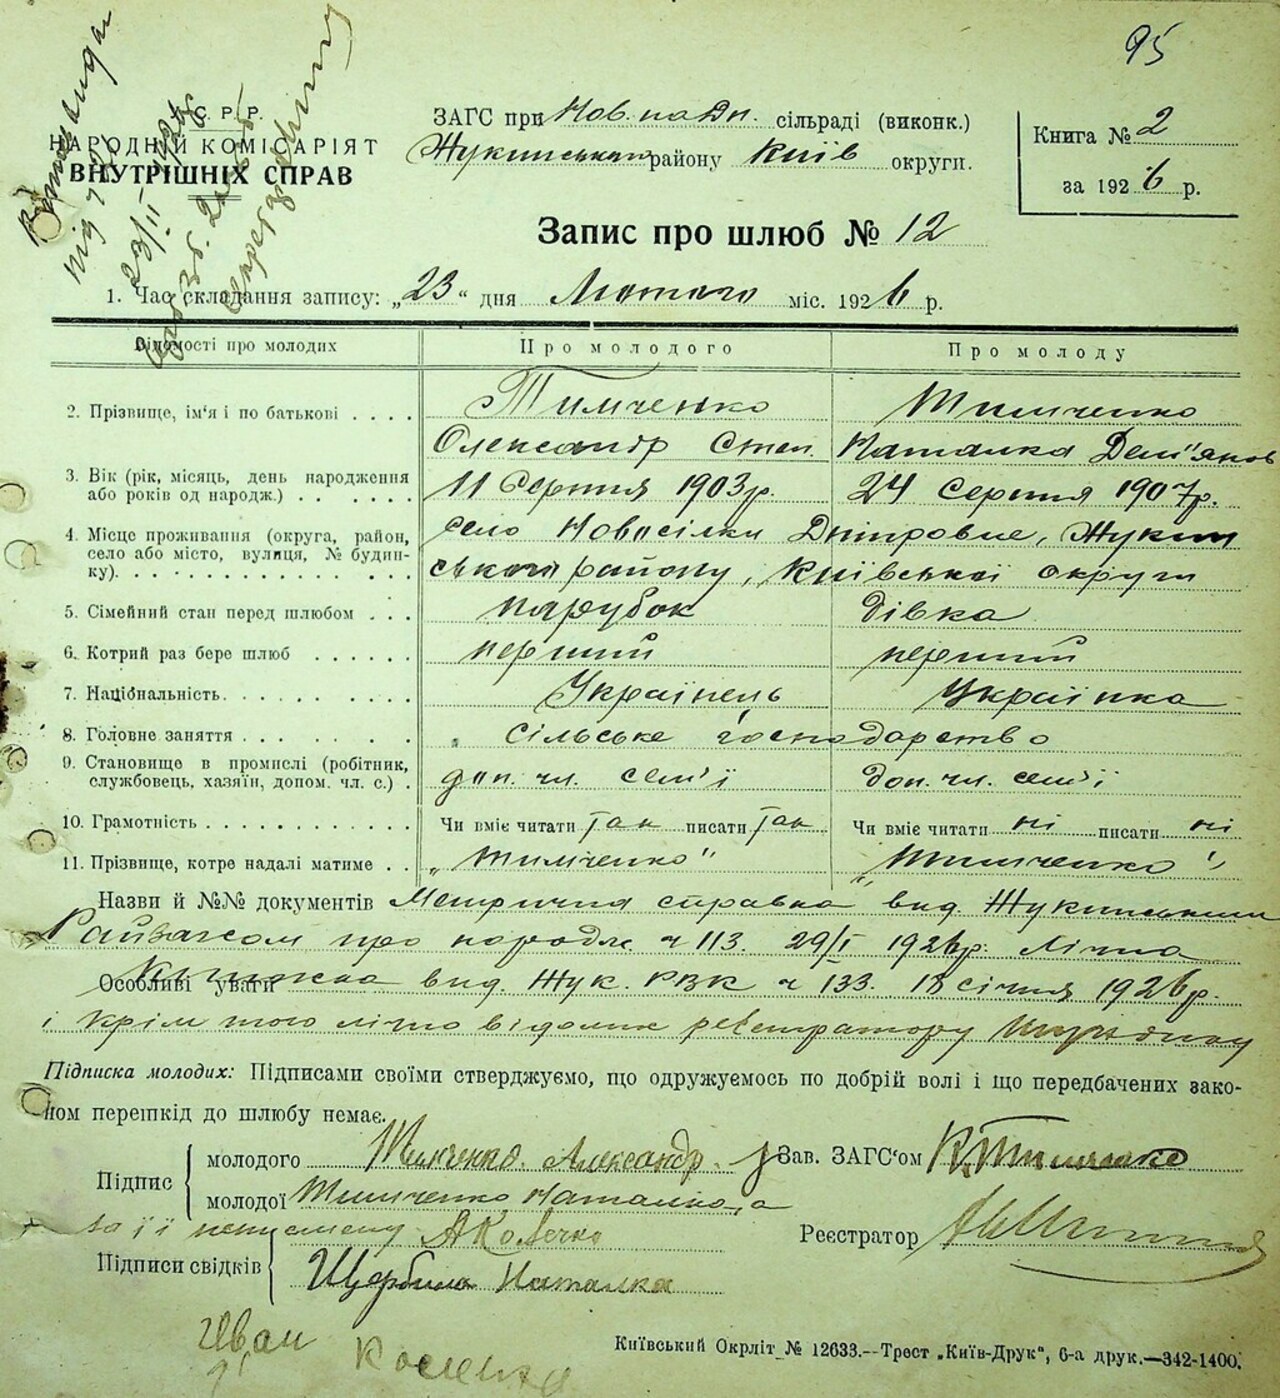 95
У.С.Р.Р.
НАРОДНІЙ КОМІСАРІЯТ
ВНУТРІШНІХ СПРАВ
ЗАГС при Нов. на Дн. сільраді (виконк.)
Жукинський району Київ округи.
Книга № 2
за 1926 р.
Запис про шлюб № 12
1. Час складання запису: „23“ дня Лютого міс. 1926 р.
Відомості про молодих
Про молодого
Про молоду
2. Прізвище, ім'я і по батькові
Тимченко
Тимченко
Олександр Степ.
Наталка Дем'янов
3. Вік (рік, місяць, день народження або років од народж.)
11 Серпня 1903 р.
24 Серпня 1907 р.
4. Місце проживання (округа, район, село або місто, вулиця, № будинку).
село Новосілки Дніпровие, Жукин
ського району, Київської округи
5. Сімейний стан перед шлюбом
парубок
дівка
6. Котрий раз бере шлюб
перший
перший
7. Національність
Українець
Українка
8. Головне заняття
сільське господарство
9. Становище в промислі (робітник, службовець, хазяїн, допом. чл. с.)
доп. чл. сем'ї
доп. чл. сем'ї
10. Грамотність
Чи вміє читати так писати так
Чи вміє читати ні писати ні
11. Прізвище, котре надалі матиме
„Тимченко"
„Тимченко"
Назви й №№ документів Метрична справка вид. Жукинським
Райзагсом про народж. ч 113. 29/I 1926 р. Лічна
Особливі уваги Книжка вид. Жук. РВК ч 133. 18 січня 1926 р.
і крім того лічно відомик реєстратору
Підписка молодих: Підписами своїми стверджуємо, що одружуємось по добрій волі і що передбачених зако-
ном перешкід до шлюбу немає.
Підпис
молодого Тимченко. Александр.
молодої Тимченко Наталка, а
за її неписмену АКолечко
Зав. ЗАГС'ом К. Тимченко
Реєстратор
Підписи свідків
Щербина Наталка
Иван
Київський Окрліт № 12633.—Трест „Київ-Друк", 6-а друк.—342-1400.